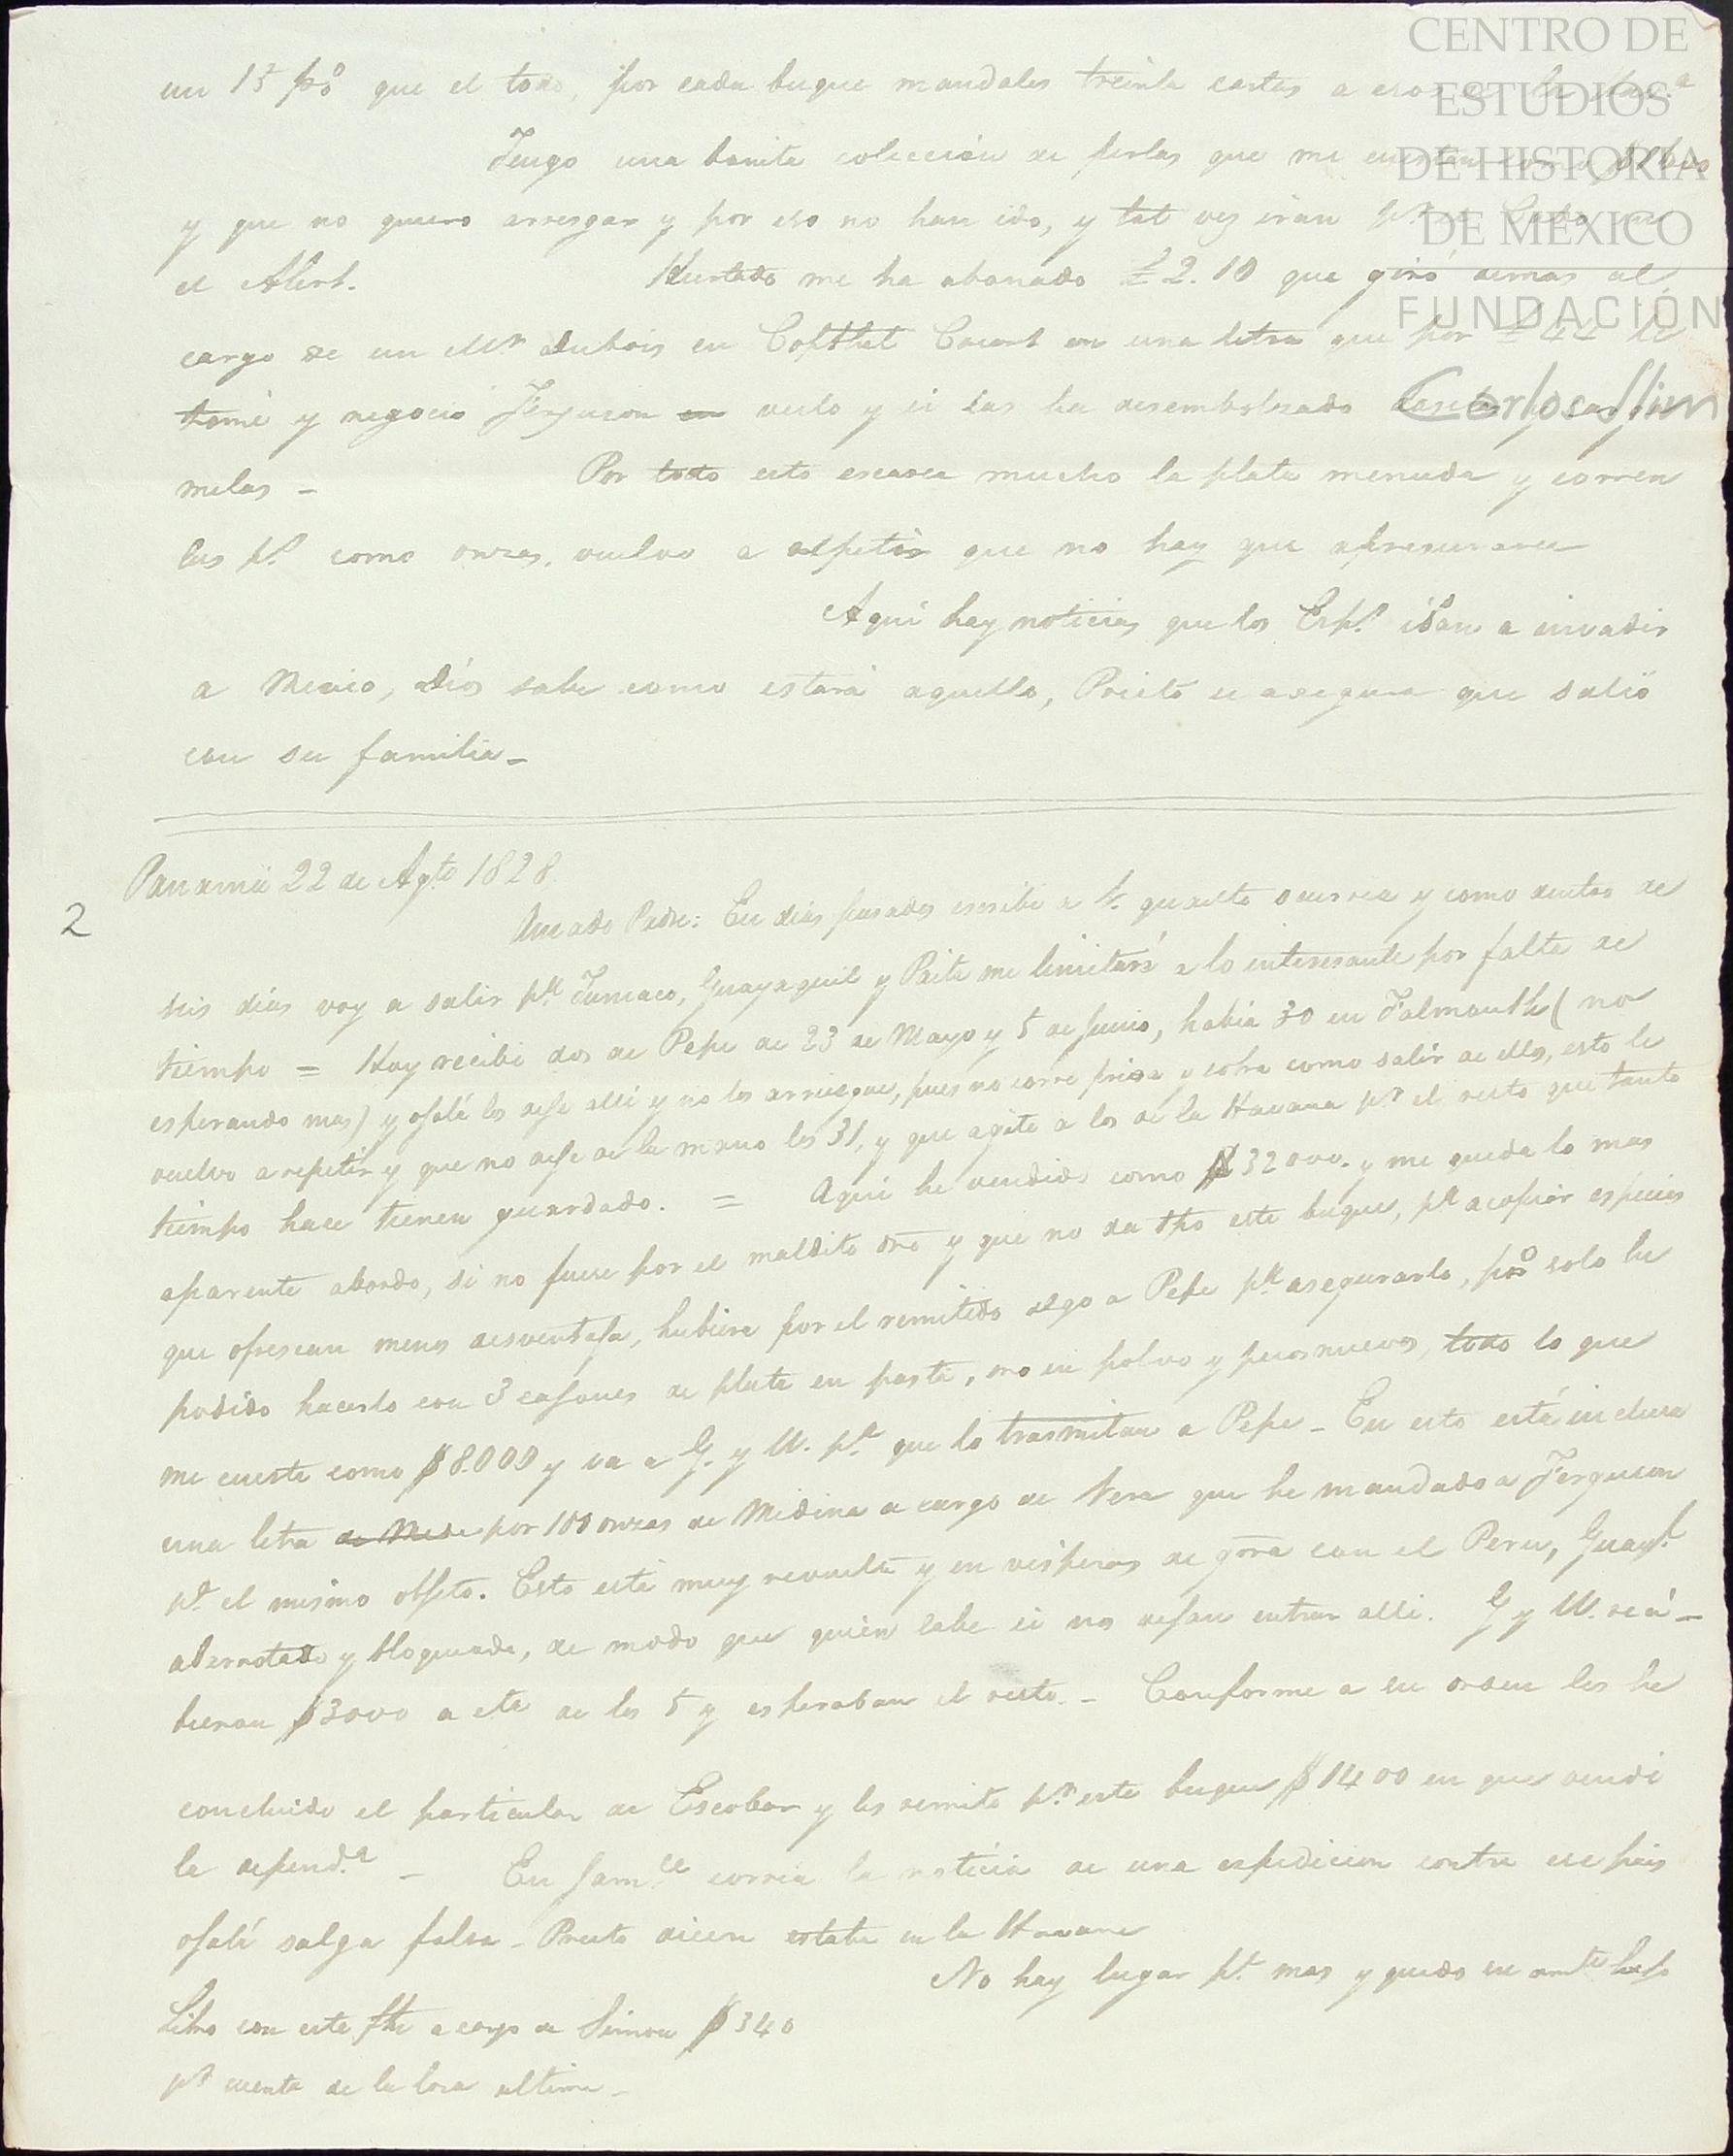 CENTRO DE
ESTUDIOS
DE HISTORIA
DE MEXICO
FUNDACIÓN
Carlos Slim
un 15 p%o que el todo, por cada buque mandales treinta cartas a esos de la
Tengo una bonita colección de perlas que me cuestan como
y que no quiero arresgar y por eso no han ido, y tal vez irán
el Alert. Hurtado me ha abonado £ 2.10 que giró demas al
cargo de un Mr Dubois en Copthal Court en una letra que por £ 44 le
tomé y negoció Ferguson veelo y si las ha desembolsado
melas -
Por todo esto escasea mucho la plata menuda y corren
las p.s como onzas, vuelvo a repetir que no hay que apresurarse
Aquí hay noticias que los Esp.s iban a invadir
a Mexico, Dios sabe como estará aquello, Prieto se asegura que salió
con su familia -
2
Panamá 22 de Agto 1828.
Amado Padre: En dias pasados escribi a V. quanto ocurria y como dentro de
seis dias voy a salir pa Tumaco, Guayaquil y Paita me limitaré a lo interesante por falta de
tiempo = Hoy recibi dos de Pepe de 23 de Mayo y 5 de Junio, habia 30 en Falmouth (no
esperando mas) y ojalá los deje alli y no los arriesgue, pues no corre prisa y sobra como salir de ellos, esto le
vuelvo a repetir y que no deje de la mano los 31, y que agite a los de la Havana pr el resto que tanto
tiempo hace tienen guardado. = Aqui he vendido como $32000. y me queda lo mas
aparente abordo, si no fuese por el maldito oro y que no da tpo este buque, pa acopiar especies
que ofrescan menos desventaja, hubiera por el remitido algo a Pepe pa asegurarlo, pero solo he
podido hacerlo con 3 cajones de plata en pasta, oro en polvo y pesos nuevos, todo lo que
me cuesta como $8.000 y va a G. y W. pa que lo trasmitan a Pepe - En esto está inclusa
una letra de Mede por 100 onzas de Medina a cargo de Vera que he mandado a Ferguson
pa el mismo objeto. Esto está muy revuelto y en visperas de gra con el Peru, Guayl
aberrotado y bloqueado, de modo que quien sabe si nos dejan entrar alli. G y W. reci-
bieron $3000 a cta de los 5 y esperaban el resto. - Conforme a su orden les he
concluido el particular de Escobar y les remito pr este buque $1400 en que vendi
la depend.a - En Jam.ca corria la noticia de una espedicion contra ese pais
ojalá salga falsa - Prieto dicen estaba en la Havana
No hay lugar pa mas y quedo su amte hijo
Libro con esta fha a cargo de Simon $340
pr cuenta de la loza ultima -